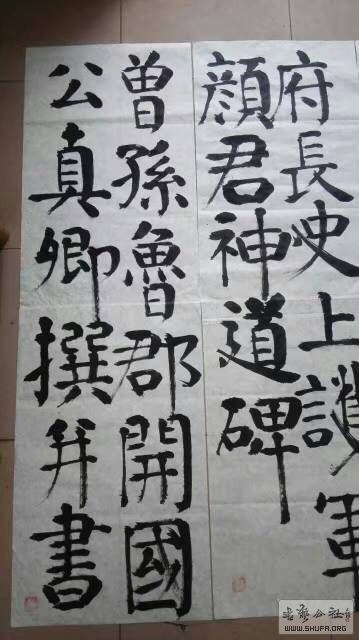 府長史上護軍
顔君神道碑
曾孫魯郡開國
公真卿撰并書
WWW.SHUFA.ORG